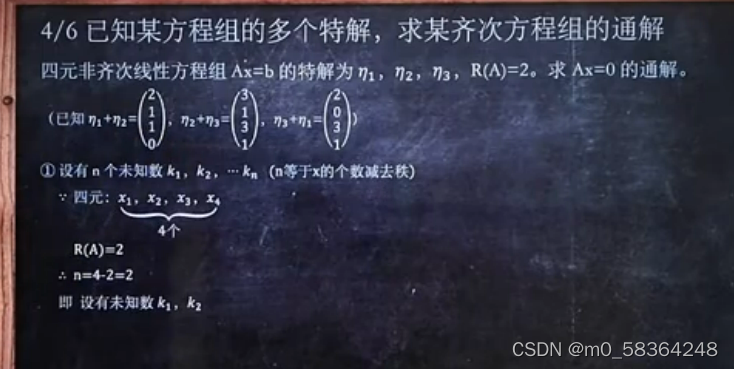 4/6 已知某方程组的多个特解，求某齐次方程组的通解
四元非齐次线性方程组 Ax=b 的特解为 η₁，η₂，η₃，R(A)=2。求 Ax=0 的通解。
（已知 η₁+η₂=(2 1 1 0)，η₂+η₃=(3 1 3 1)，η₃+η₁=(2 0 3 1)）
① 设有 n 个未知数 k₁，k₂，⋯ kₙ（n等于x的个数减去秩）
∵ 四元：x₁，x₂，x₃，x₄
4个
R(A)=2
∴ n=4-2=2
即 设有未知数 k₁，k₂
CSDN @m0_58364248